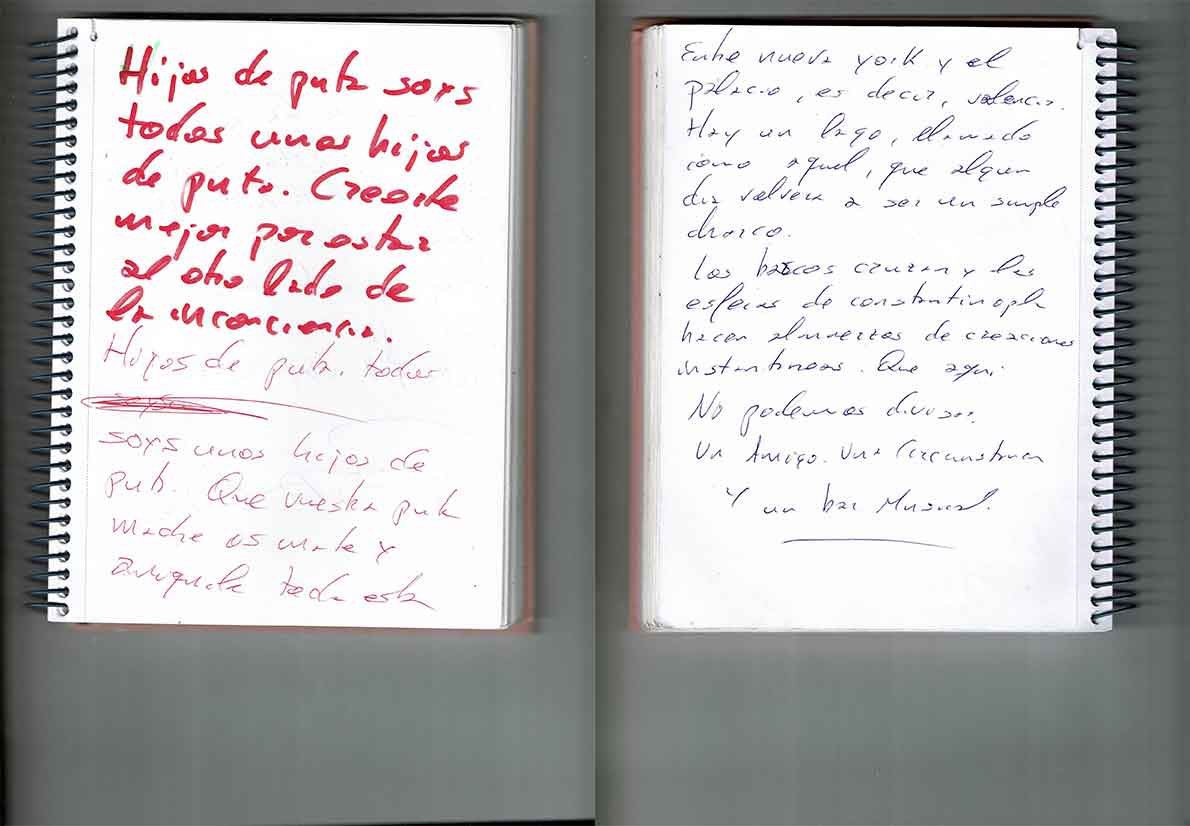 Hijos de puta soys
todos unos hijos
de puta. Creeste
mejor por estar
al otro lado de
la inconciencia.
Hijos de puta. todos
soys unos hijos de
puta. Que vuestra puta
madre os mate y
aniquile toda esta
Entre nueva york y el
palacio, es decir, valencia.
Hay un lago, llamado
como aquel, que algun
dia volvera a ser un simple
charco.
Los barcos cruzan y las
esferas de constantinopla
hacen almuerzos de creaciones
instantineas. Que aqui
No podemos divisar.
Un Amigo. Una Circunstancia
Y un bar Musical.